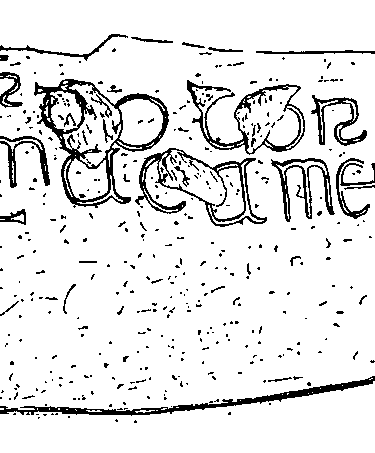 do cor
mac ame